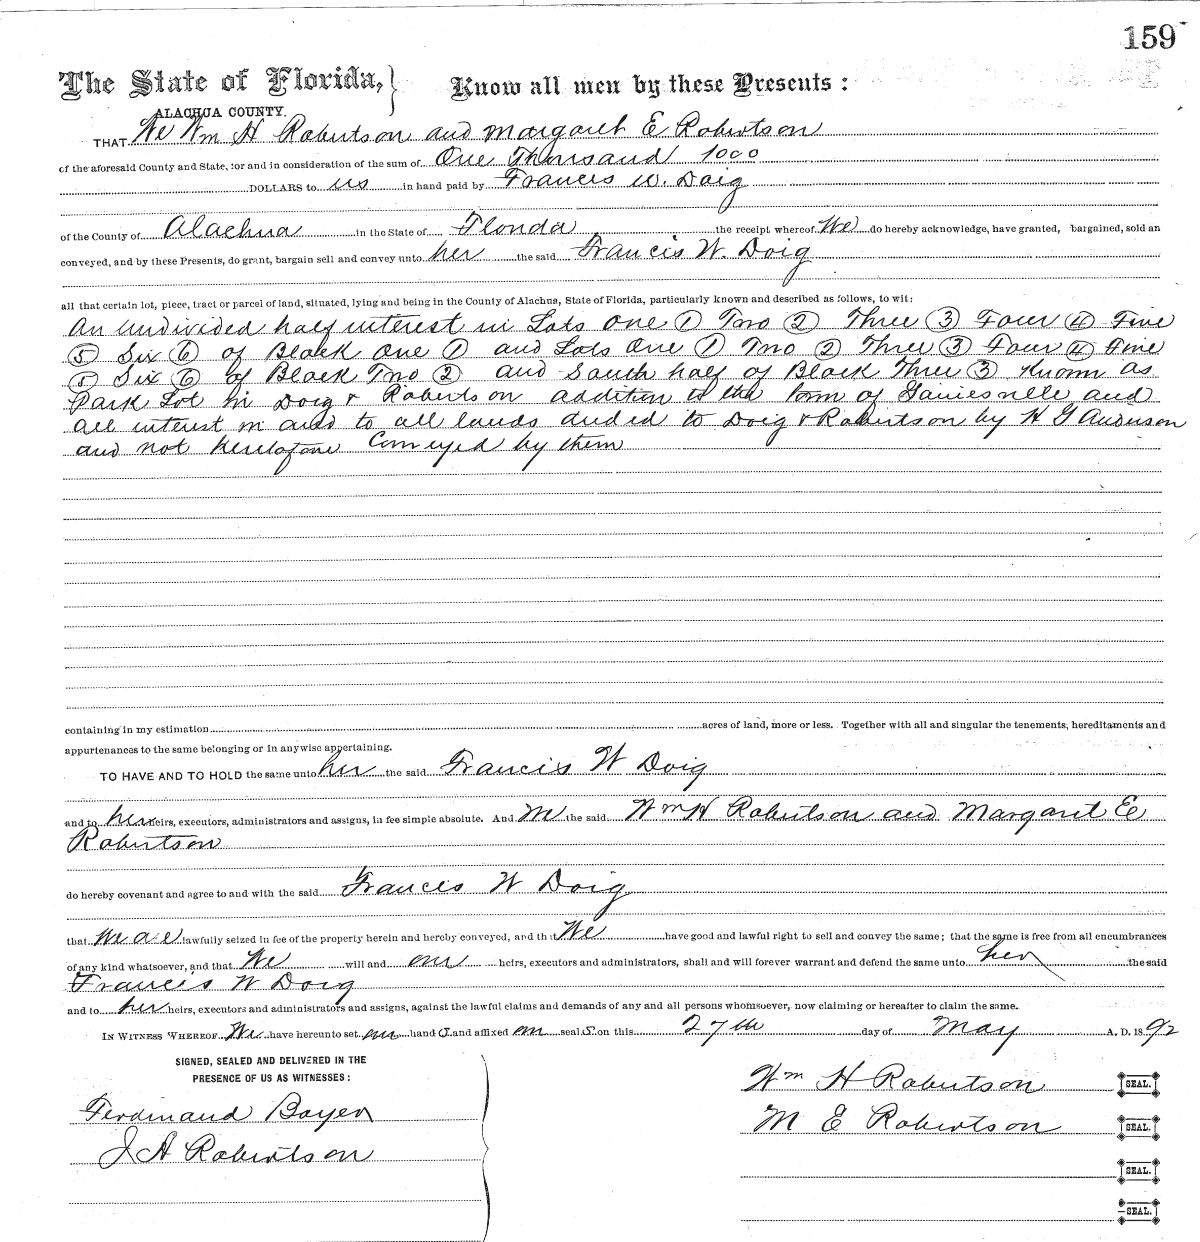 159
The State of Florida,} Know all men by these Presents:
ALACHUA COUNTY.
THAT We Wm H Robertson and Margaret E Robertson
of the aforesaid County and State, for and in consideration of the sum of One Thousand 1000
DOLLARS to us in hand paid by Francis W. Doig
of the County of Alachua in the State of Florida the receipt whereof We do hereby acknowledge, have granted, bargained, sold an
conveyed, and by these Presents, do grant, bargain sell and convey unto her the said Francis W. Doig
all that certain lot, piece, tract or parcel of land, situated, lying and being in the County of Alachua, State of Florida, particularly known and described as follows, to wit:
An undivided half interest in Lots One ① Two ② Three ③ Four ④ Five
⑤ Six ⑥ of Block One ① and Lots One ① Two ② Three ③ Four ④ Five
⑤ Six ⑥ of Block Two ② and South half of Block Three ③ Known as
Park Lot in Doig & Robertson addition to the town of Gainesville and
all interest in and to all lands deeded to Doig & Robertson by H G Anderson
and not heretofore Conveyed by them
containing in my estimation acres of land, more or less. Together with all and singular the tenements, hereditaments and
appurtenances to the same belonging or in anywise appertaining.
TO HAVE AND TO HOLD the same unto her the said Francis W Doig
and to her heirs, executors, administrators and assigns, in fee simple absolute. And We the said Wm H Robertson and Margaret E
Robertson
do hereby covenant and agree to and with the said Francis W Doig
that We are lawfully seized in fee of the property herein and hereby conveyed, and that We have good and lawful right to sell and convey the same; that the same is free from all encumbrances
of any kind whatsoever, and that We will and our heirs, executors and administrators, shall and will forever warrant and defend the same unto her the said
Francis W Doig
and to her heirs, executors and administrators and assigns, against the lawful claims and demands of any and all persons whomsoever, now claiming or hereafter to claim the same.
IN WITNESS WHEREOF We have hereunto set our hand S and affixed our seal S on this 27th day of May A. D. 1892
SIGNED, SEALED AND DELIVERED IN THE
PRESENCE OF US AS WITNESSES:
Wm H Robertson SEAL.
Ferdinand Bayer
M E Robertson SEAL.
J A Robertson
SEAL.
SEAL.